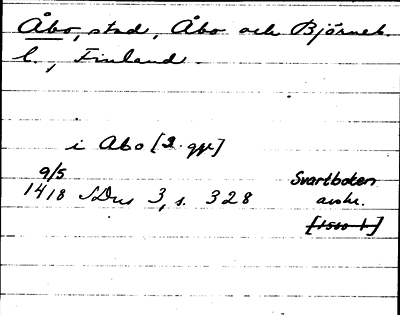 Åbo, stad, Åbo och Björneb.
l., Finland.
i Abo [2 ggr]
9/5
1418 SDns 3, s. 328
Svartboken
avskr.
[1500 t.]